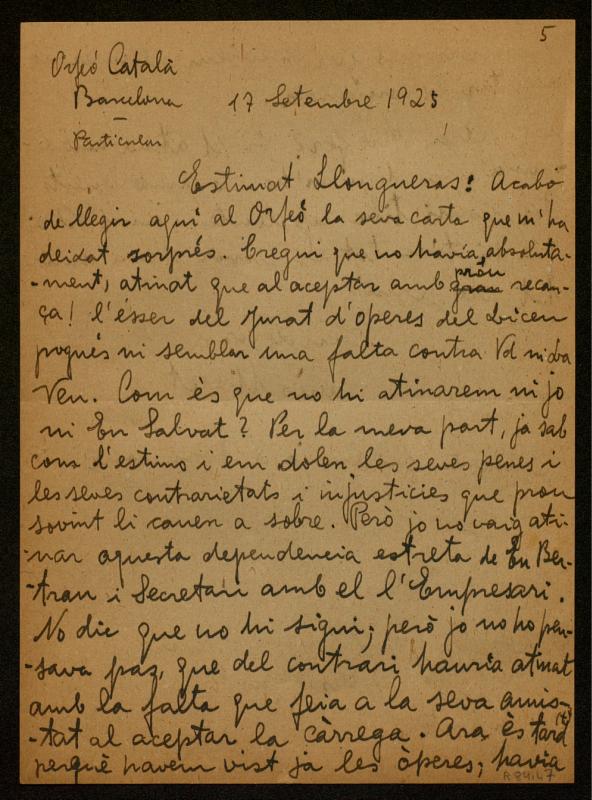 5
Orfeó Català
Barcelona 17 Setembre 1925
Particular
Estimat Llongueras: Acabo
de llegir aquí al Orfeó la seva carta que m'ha
deixat sorprés. Cregui que no havía, absoluta-
-ment, atinat que al aceptar amb prou recan-
ça! l'ésser del Jurat d'operes del Liceu
pogués ni semblar una falta contra Vd ni
Veu. Com ès que no hi atinarem ni jo
ni En Salvat? Per la meva part, ja sab
com l'estimo i em dolen les seves penes i
les seves contrarietats i injusticies que prou
sovint li cauen a sobre. Però jo no vaig ati-
-nar aquesta dependencia estreta de En Ber-
-tran i Secretari amb el l'Empresari.
No dic que no hi sigui; però jo no ho pen-
-sava pas, que del contrari hauría atinat
amb la falta que feia a la seva amis-
-tat al aceptar la càrrega. Ara ès tard (t)
perquè havem vist ja les òperes; havía